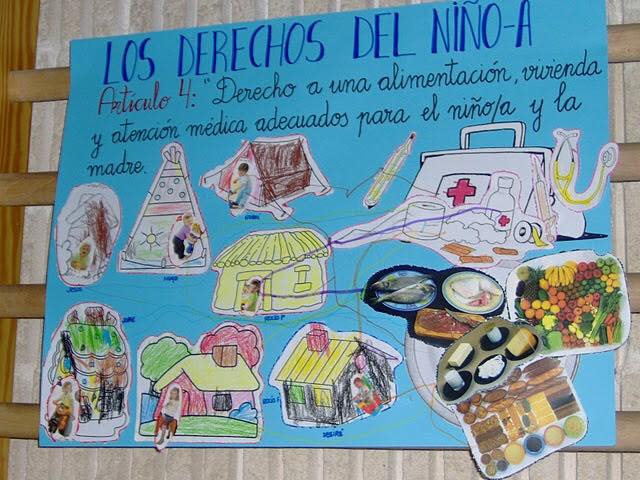 LOS DERECHOS DEL NIÑO-A
Artículo 4: "Derecho a una alimentación, vivienda
y atención médica adecuados para el niño/a y la
madre.
ROCÍO P
ROCÍO F.
DESIRÉ